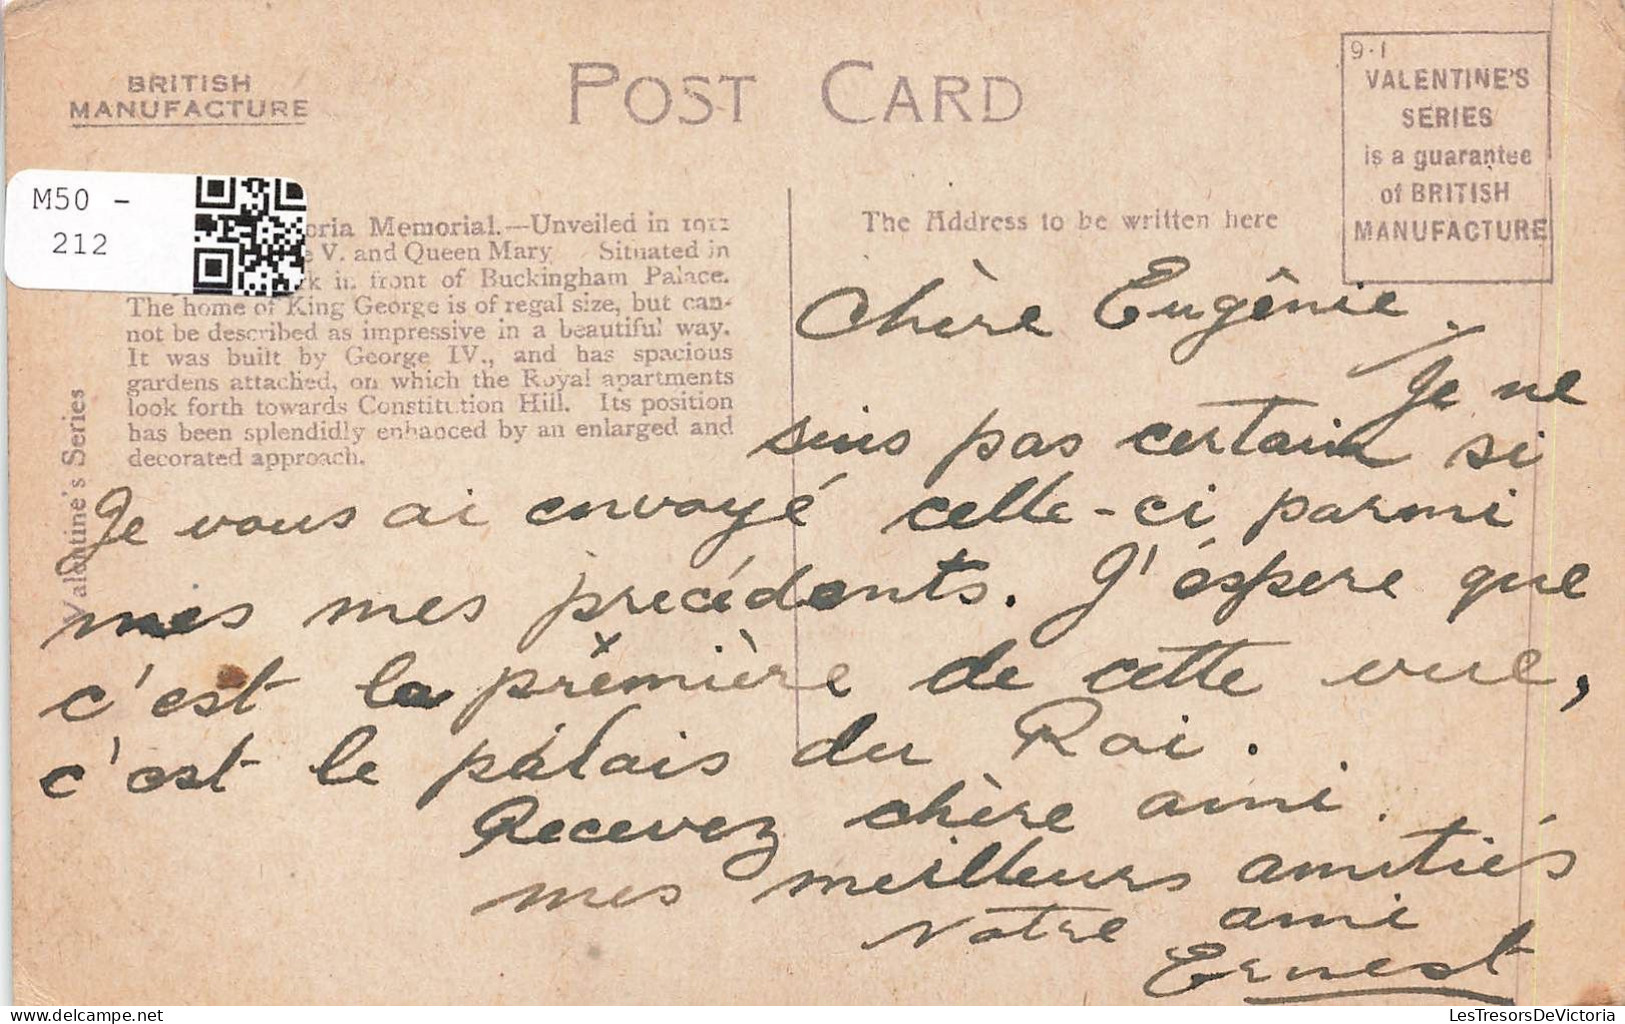 BRITISH
MANUFACTURE
POST CARD
9·1
VALENTINE'S
SERIES
is a guarantee
of BRITISH
MANUFACTURE
M50 -
212
oria Memorial.—Unveiled in 1911
e V. and Queen Mary Situated in
k in front of Buckingham Palace.
The home of King George is of regal size, but can-
not be described as impressive in a beautiful way.
It was built by George IV., and has spacious
gardens attached, on which the Royal apartments
look forth towards Constitution Hill. Its position
has been splendidly enhanced by an enlarged and
decorated approach.
Valentine's Series
The Address to be written here
Chère Eugênie,
Je ne
suis pas certain si
Je vous ai envoyé celle-ci parmi
mes mes précédents. J'éspere que
c'est la prèmière de cette vue,
c'est le pálais du Roi.
Recevez chère ami
mes meilleurs amitiés
Votre ami
Ernest
LesTresorsDeVictoria